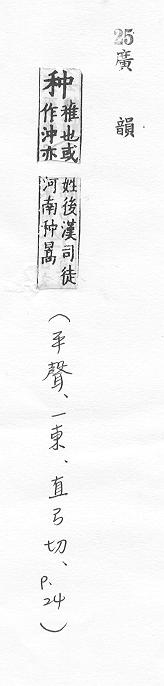 25廣　韻
种稚也或作沖亦
姓後漢司徒河南种暠
(平聲、一東、直弓切、p.24)